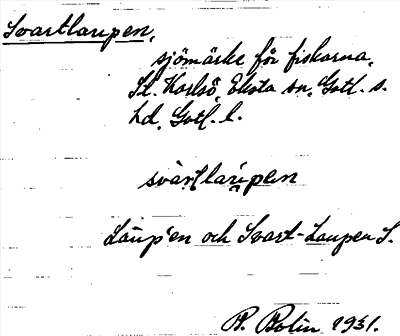 Svartlaupen,
sjömärke för fiskarna,
St. Karlsö, Eksta sn, Gotl. s.
hd, Gotl. l.
svàrtlaùpen
Laup'en och Svart-Laupen S.
P. Bolin 1931.